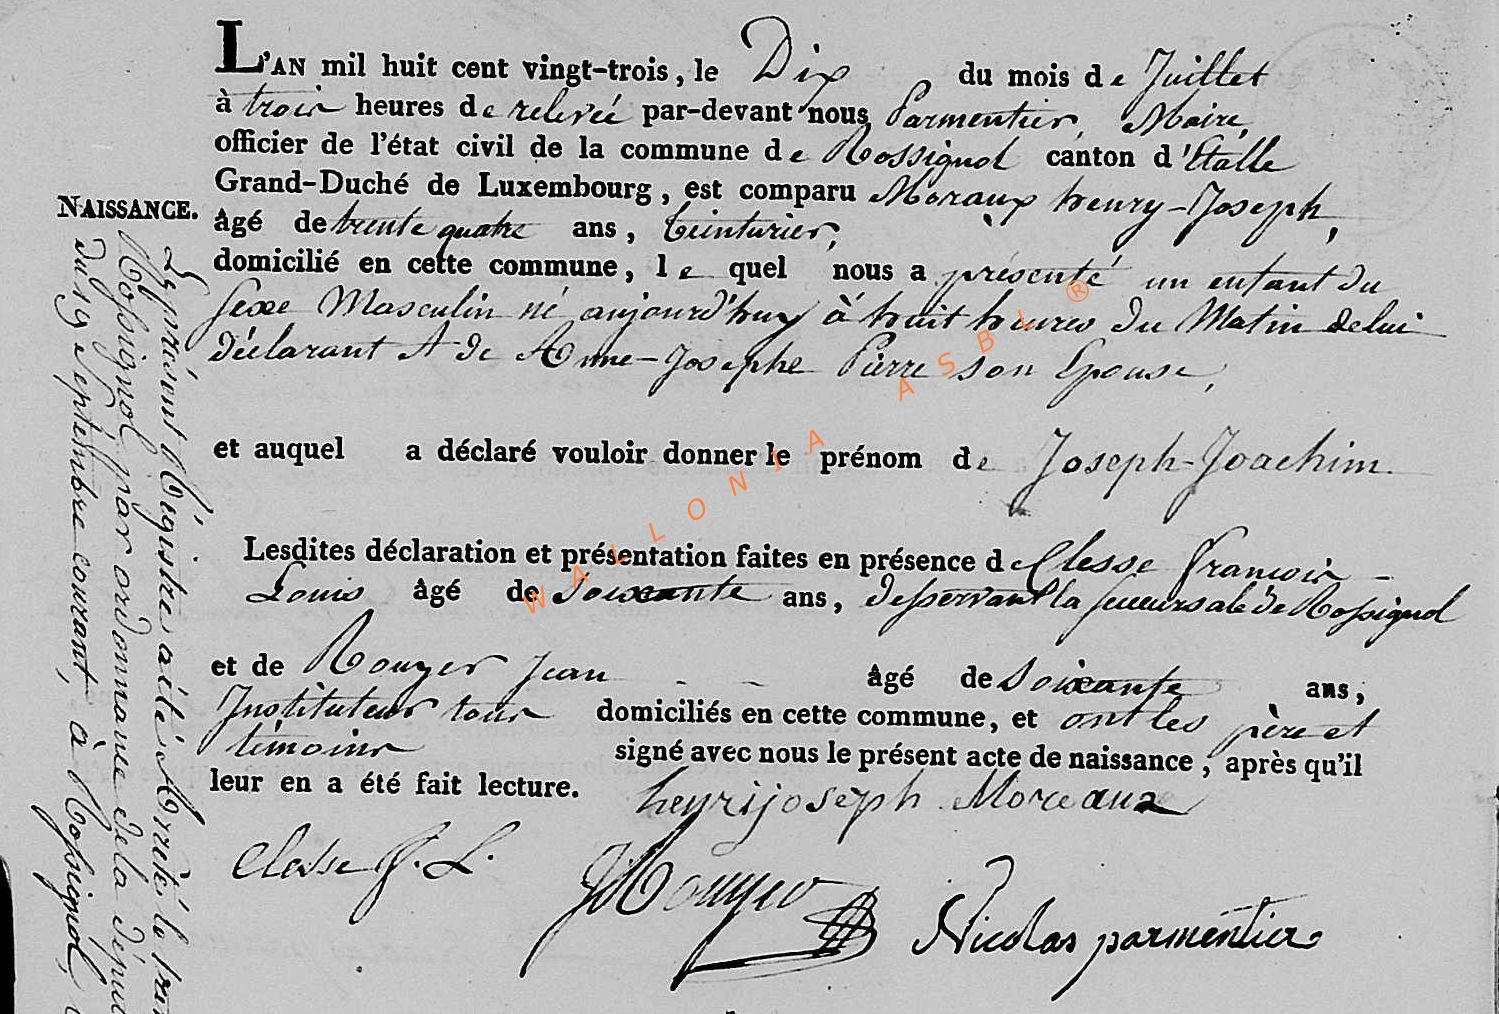 L'AN mil huit cent vingt-trois, le Dix du mois de Juillet
à trois heures de relevée par-devant nous Parmentier, Maire,
officier de l'état civil de la commune de Rossignol canton d'Etalle
Grand-Duché de Luxembourg, est comparu Moraux henry-Joseph,
NAISSANCE.
âgé de trente quatre ans, teinturier,
domicilié en cette commune, le quel nous a présenté un enfant du
sexe Masculin né aujourd'huy à huit heures du Matin de lui
déclarant & de Anne-Josephe Pierre son Epouse,
et auquel a déclaré vouloir donner le prénom de Joseph-Joachim.
Lesdites déclaration et présentation faites en présence de Clesse françois-
Louis âgé de soixante ans, desservant la succursale de Rossignol
et de Rouyer Jean - - âgé de Soixante ans,
Instituteur tous domiciliés en cette commune, et ont les père et
témoins signé avec nous le présent acte de naissance, après qu'il
leur en a été fait lecture.
henrijoseph Moreaux
Clesse f. L.
JRouyer
Nicolas parmentier
Le présent Régistre a été Arrêté le
Rossignol par ordonnance de la
du 19 Septembre courant, à Rossignol,
WALLONIA ASBL ®